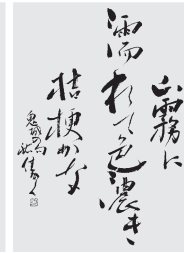 山霧に
濡れて色濃き
桔梗かな